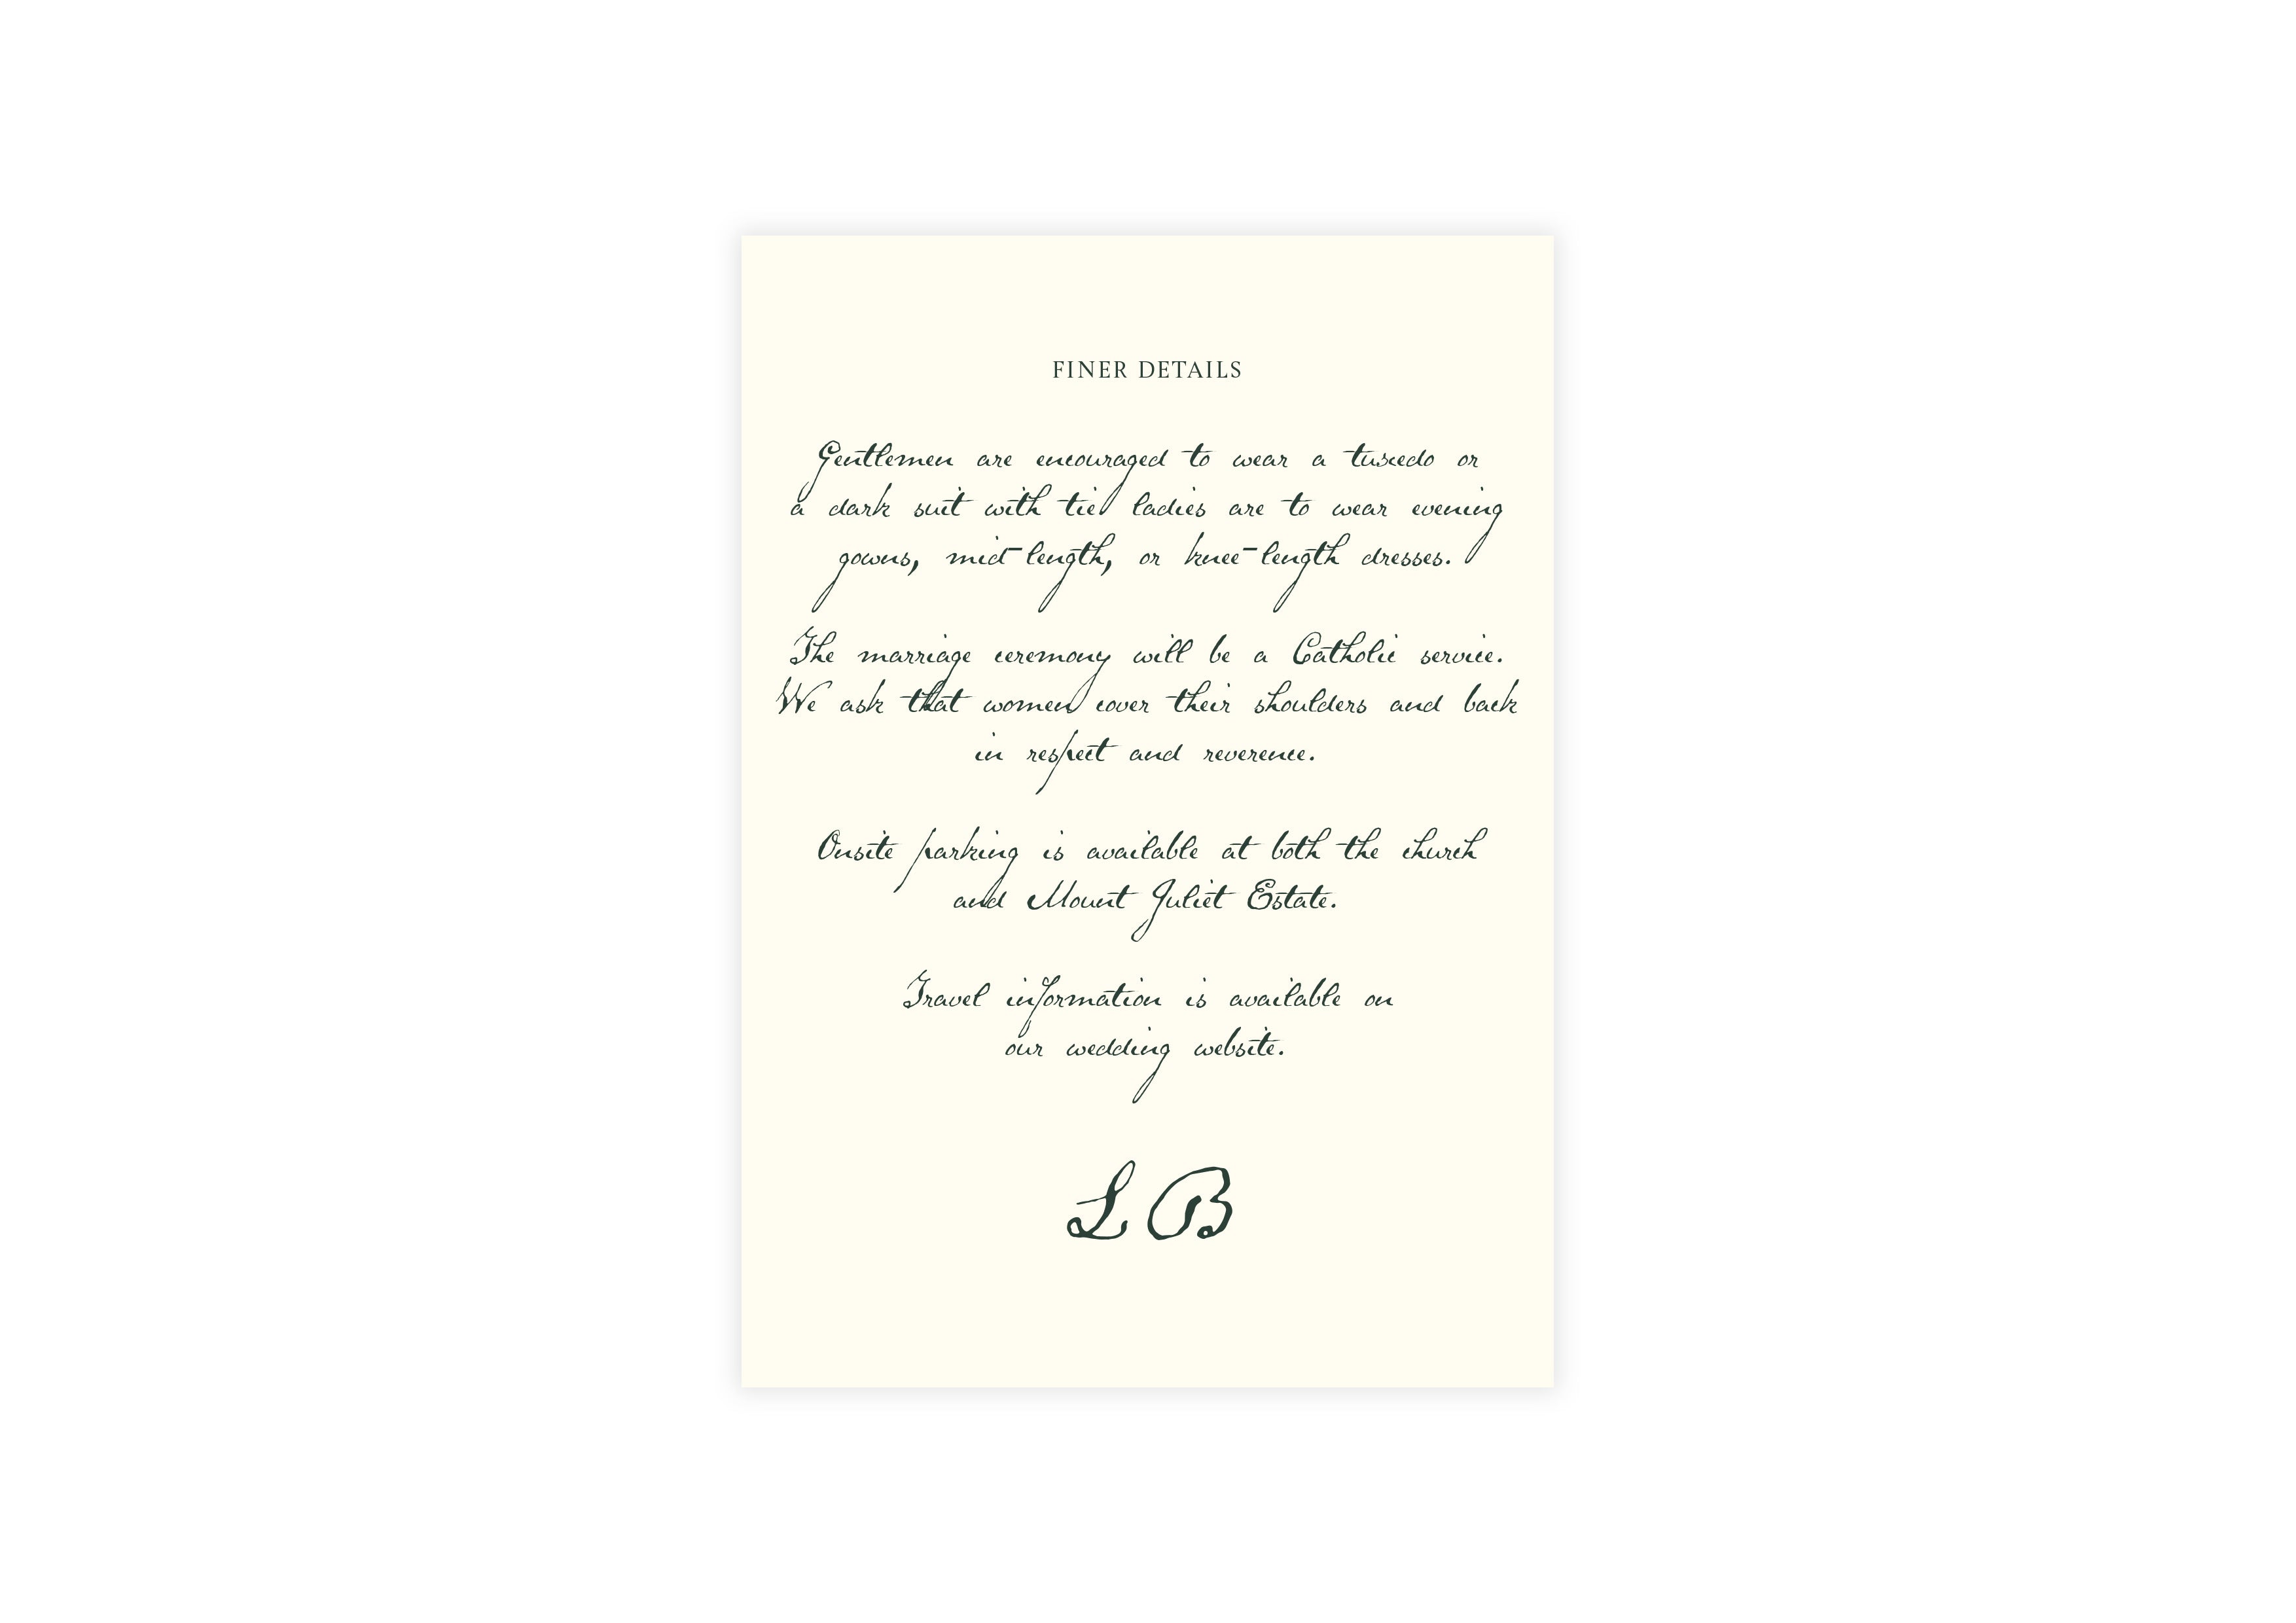 FINER DETAILS
Gentlemen are encouraged to wear a tuxedo or
a dark suit with tie ladies are to wear evening
gowns, mid-length, or knee-length dresses.
The marriage ceremony will be a Catholic service.
We ask that women cover their shoulders and back
in respect and reverence.
Onsite parking is available at both the church
and Mount Juliet Estate.
Travel information is available on
our wedding website.
L B